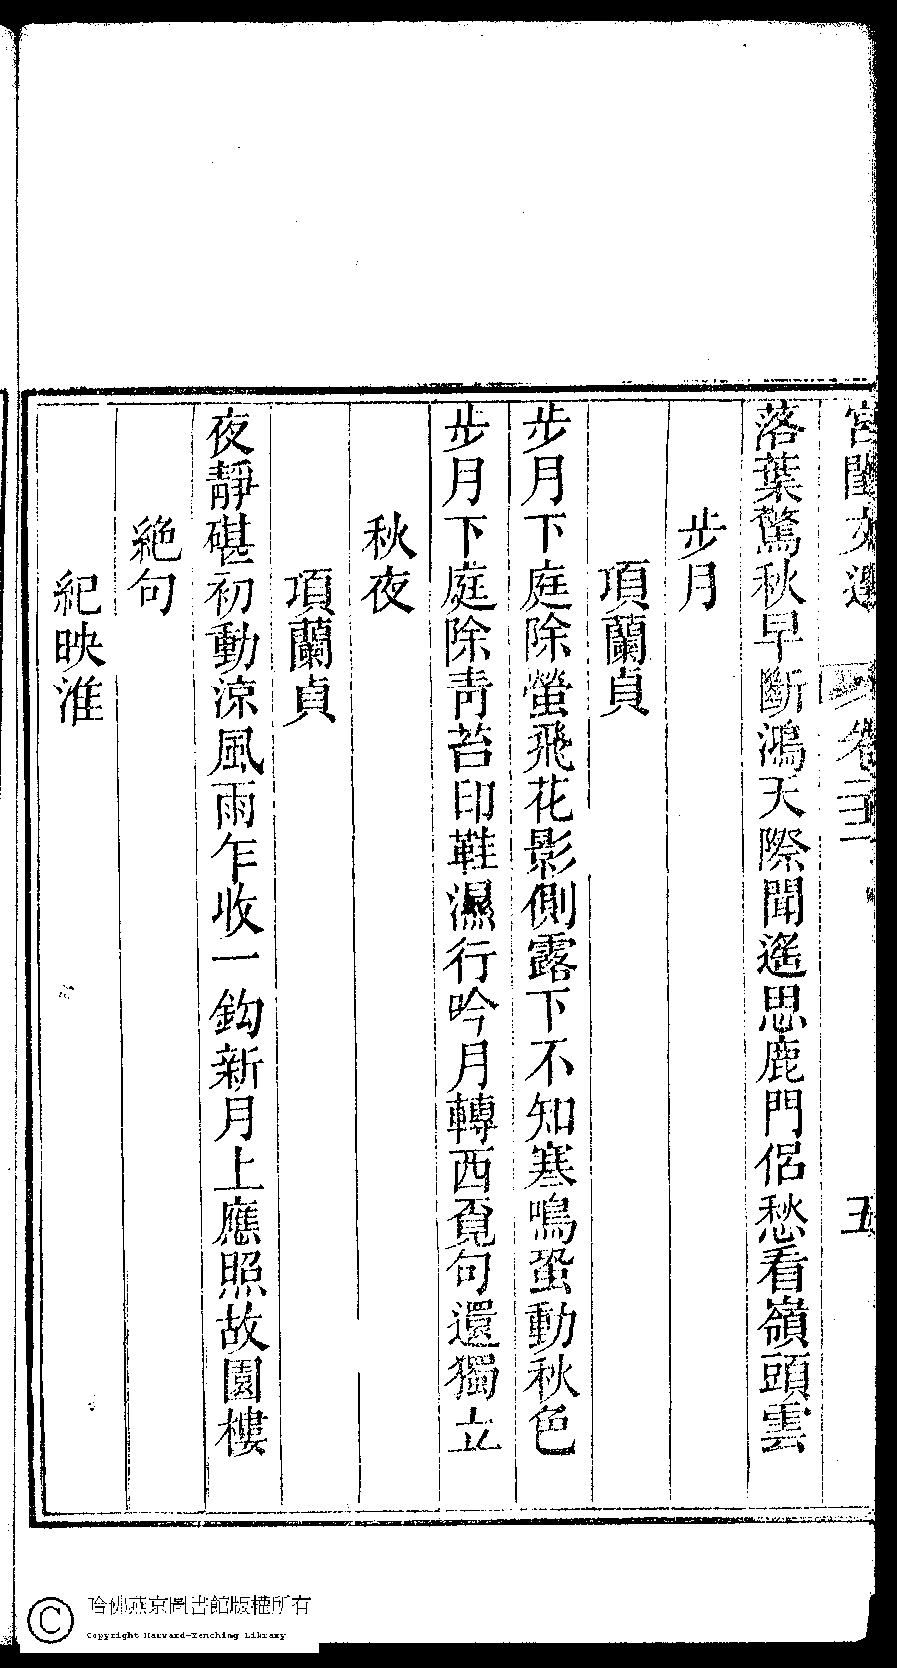 宮閨文選 卷二十二 五
落葉驚秋早斷鴻天際聞遙思鹿門侶愁看嶺頭雲
步月
項蘭貞
步月下庭除螢飛花影側露下不知寒鳴蛩動秋色
步月下庭除青苔印鞋濕行吟月轉西覔句還獨立
秋夜
項蘭貞
夜靜碪初動涼風雨乍收一鈎新月上應照故園樓
絶句
紀映淮
哈佛燕京圖書館版權所有
Copyright Harvard-Yenching Library